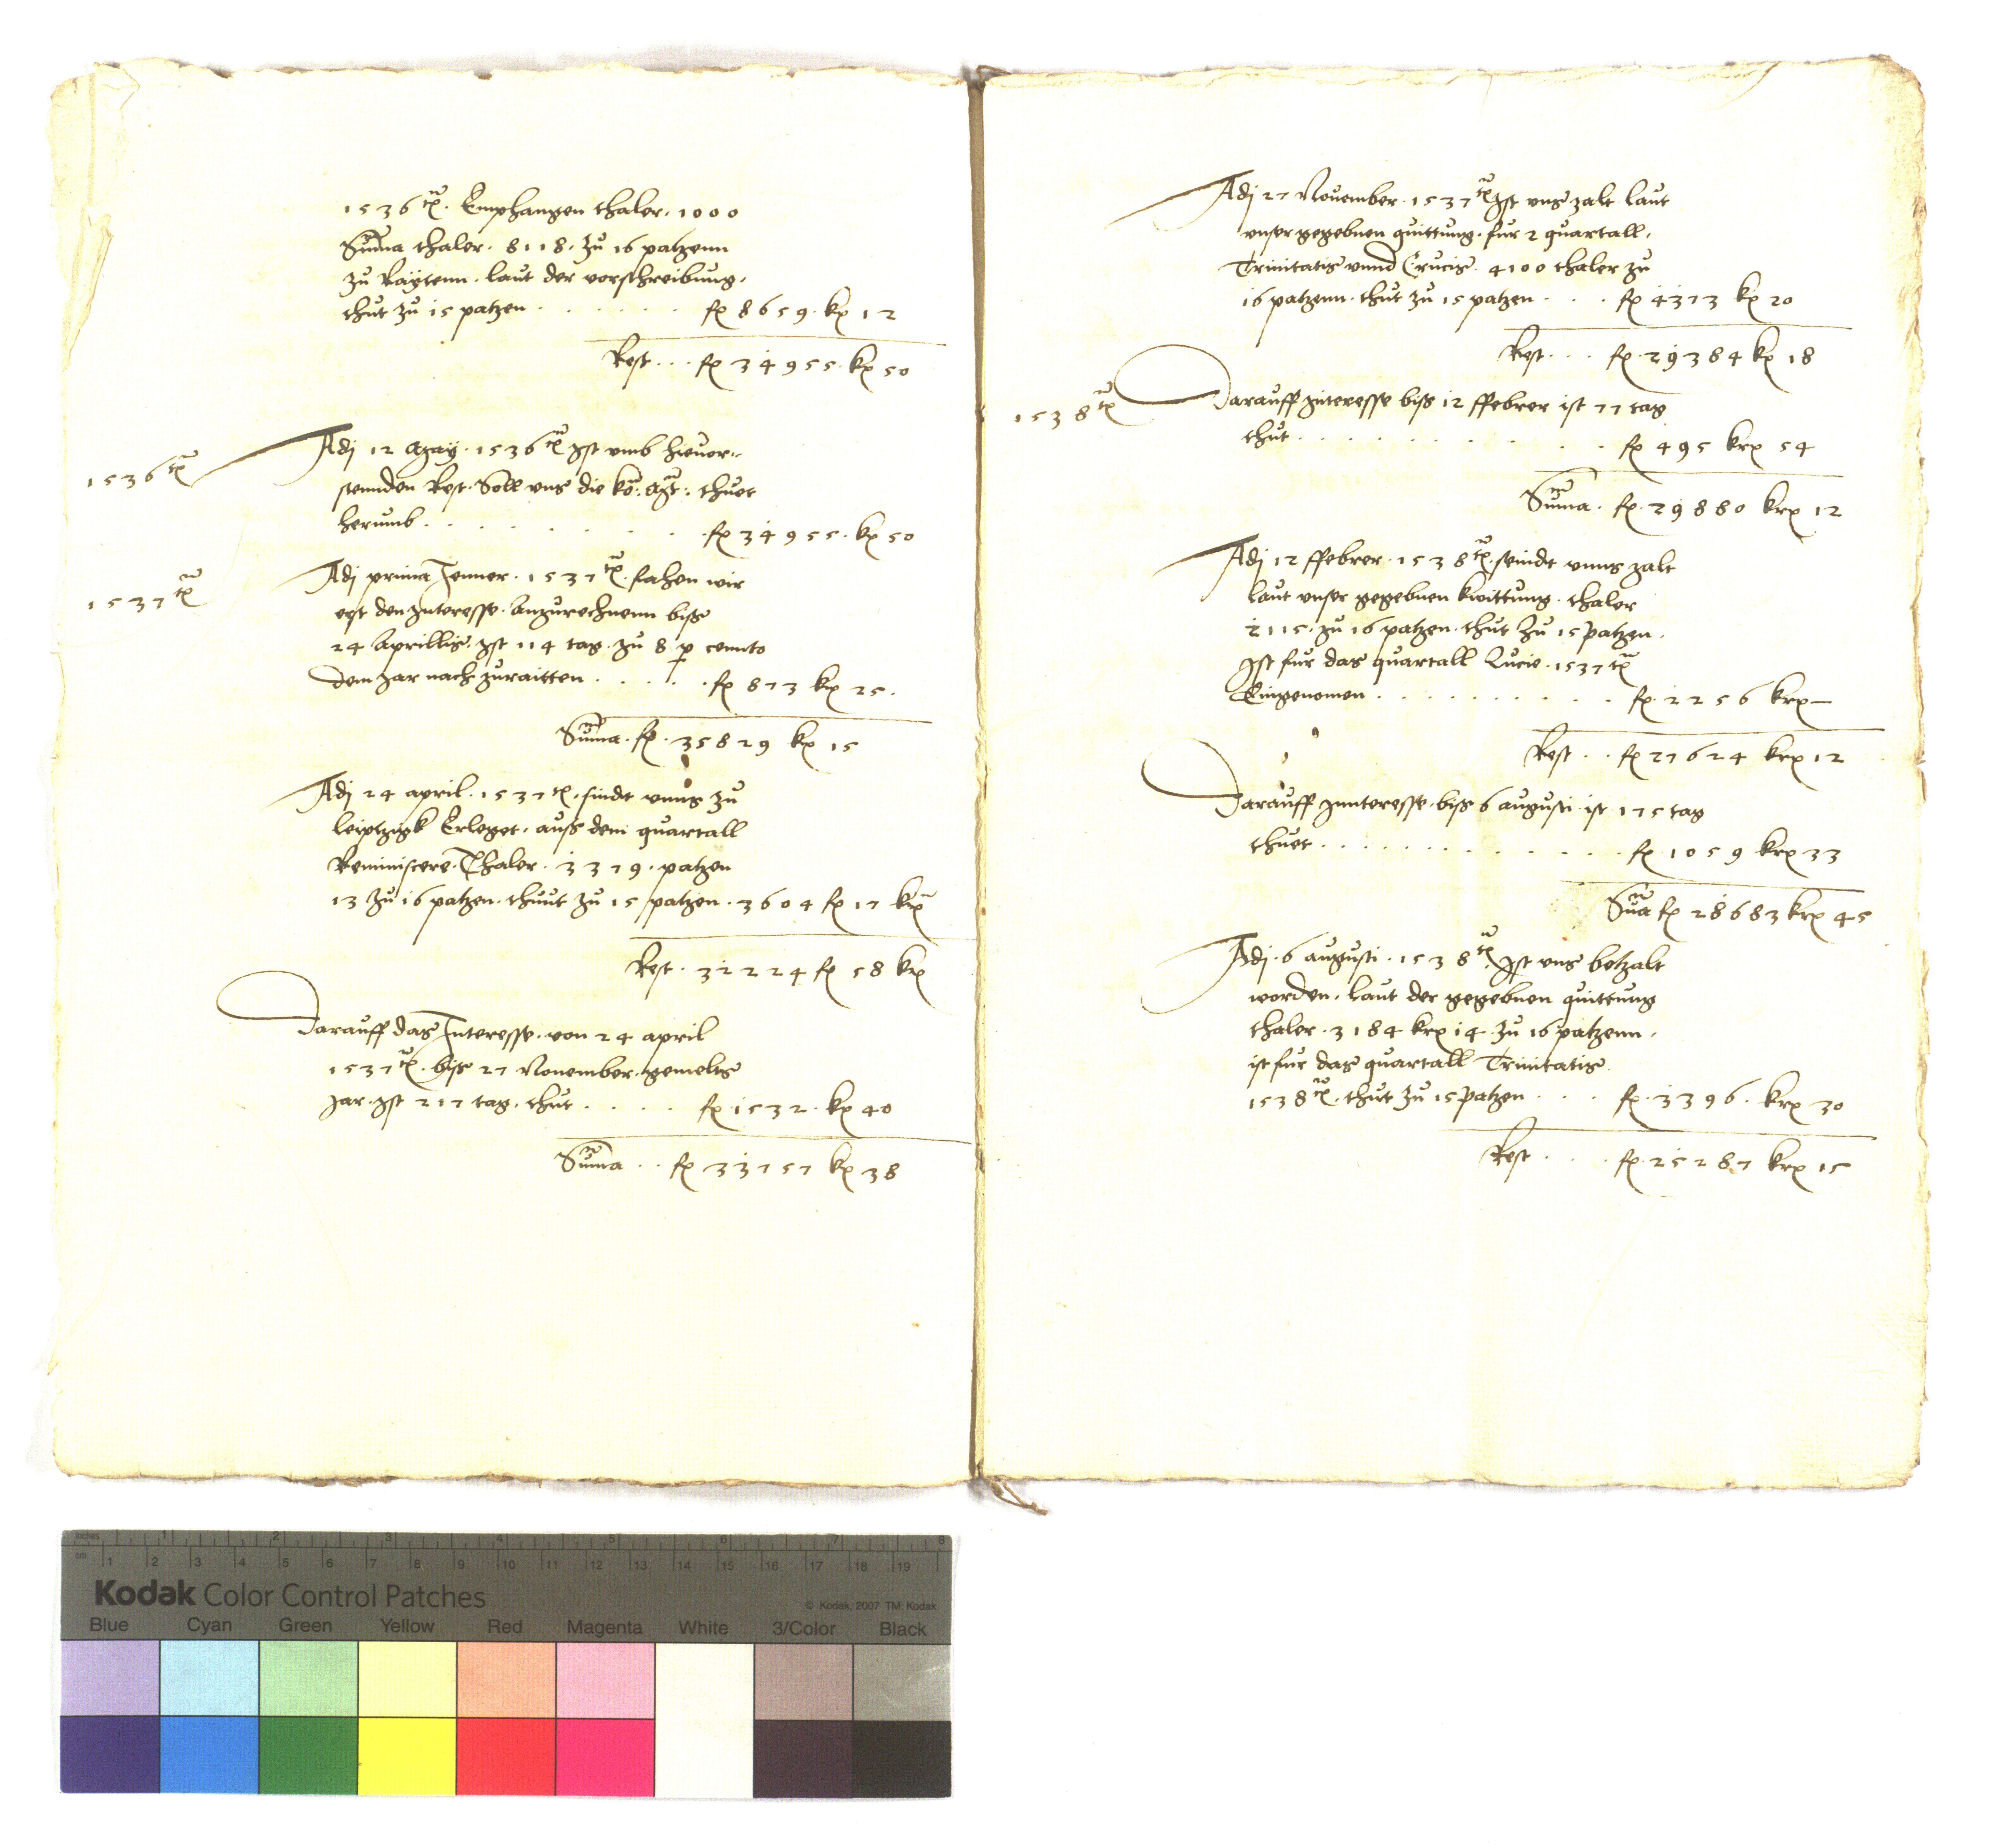 1536ten. Emphangen thaler. 1000
Suma thaler. 8118. zu 16 patzenn
zu Raytenn. laut der vorschreibung.
thut zu 15 patzen . . . . . . fl 8659. kr 12
Rest . . . fl 34955. kr 50
1536ten
Adj 12 May. 1536ten Ist umb hieuor
stennden Rest. Soll uns die kö: Mt: thuet
herumb . . . . . . . . . fl 34955. kr 50
1537ten
Adj prima Jenner. 1537ten. fahen wir
erst den Interesse. Anzurechnenn biss
24 Aprillis. Ist 114 tag. zu 8 p cennto
dem Jar nach zuraitten . . . . . fl 873 kr 25.
Suma. fl. 35829 kr 15
Adj 24 april. 1537ten. sindt unns zu
leiptzigk Erleget. auss dem quartall
Reminiscere. Thaler. 3379. patzen
13 zu 16 patzen. thuut zu 15 patzen. 3604 fl 17 kr
Rest. 32224 fl 58 kr
Darauff das Interesse. von 24 april
1537ten. biss 27 November. gemelts
Jar. Ist 217 tag. thut . . . . fl. 1532. kr 40
Suma . . fl 33757 kr 38
Adj 27 November. 1537ten Ist uns zalt laut
unser gegebnen quittung. fur 2 quartall.
Trinitatis unnd Crucis. 4100 thaler zu
16 patzenn. thut zu 15 patzen . . . fl 4373 kr 20
Rest . . . fl. 29384 kr 18
1538ten
Darauff Interesse biss 12 ffebrer ist 77 tag
thut . . . . . . . . . . fl 495 krr 54
Suma. fl. 29880 krr 12
Adj 12 ffebrer. 1538ten. seindt unns zalt
laut unser gegebnen kwittung. thaler
2115. zu 16 patzen. thut zu 15 patzen.
Ist fur das quartall Lucie. 1537ten
Eingenomen . . . . . . . . . fl. 2256 krr —
Rest . . fl 27624 krr 12
Darauff Innteresse. biss 6 augusti ist 175 tag
thuet . . . . . . . . . . . fl 1059 krr 33
Sua fl 28683 krr 45
Adj. 6 augusti. 1538ten. Ist uns betzalt
worden. laut der gegebnen quittung
thaler. 3184 krr 14 zu 16 patzenn.
ist fur das quartall Trinitatis.
1538ten. thut zu 15 patzen . . . fl. 3396. krr 30
Rest . . . fl. 25287 krr 15
inches 1 2 3 4 5 6 7 8
cm 1 2 3 4 5 6 7 8 9 10 11 12 13 14 15 16 17 18 19
Kodak Color Control Patches
© Kodak, 2007 TM: Kodak
Blue Cyan Green Yellow Red Magenta White 3/Color Black